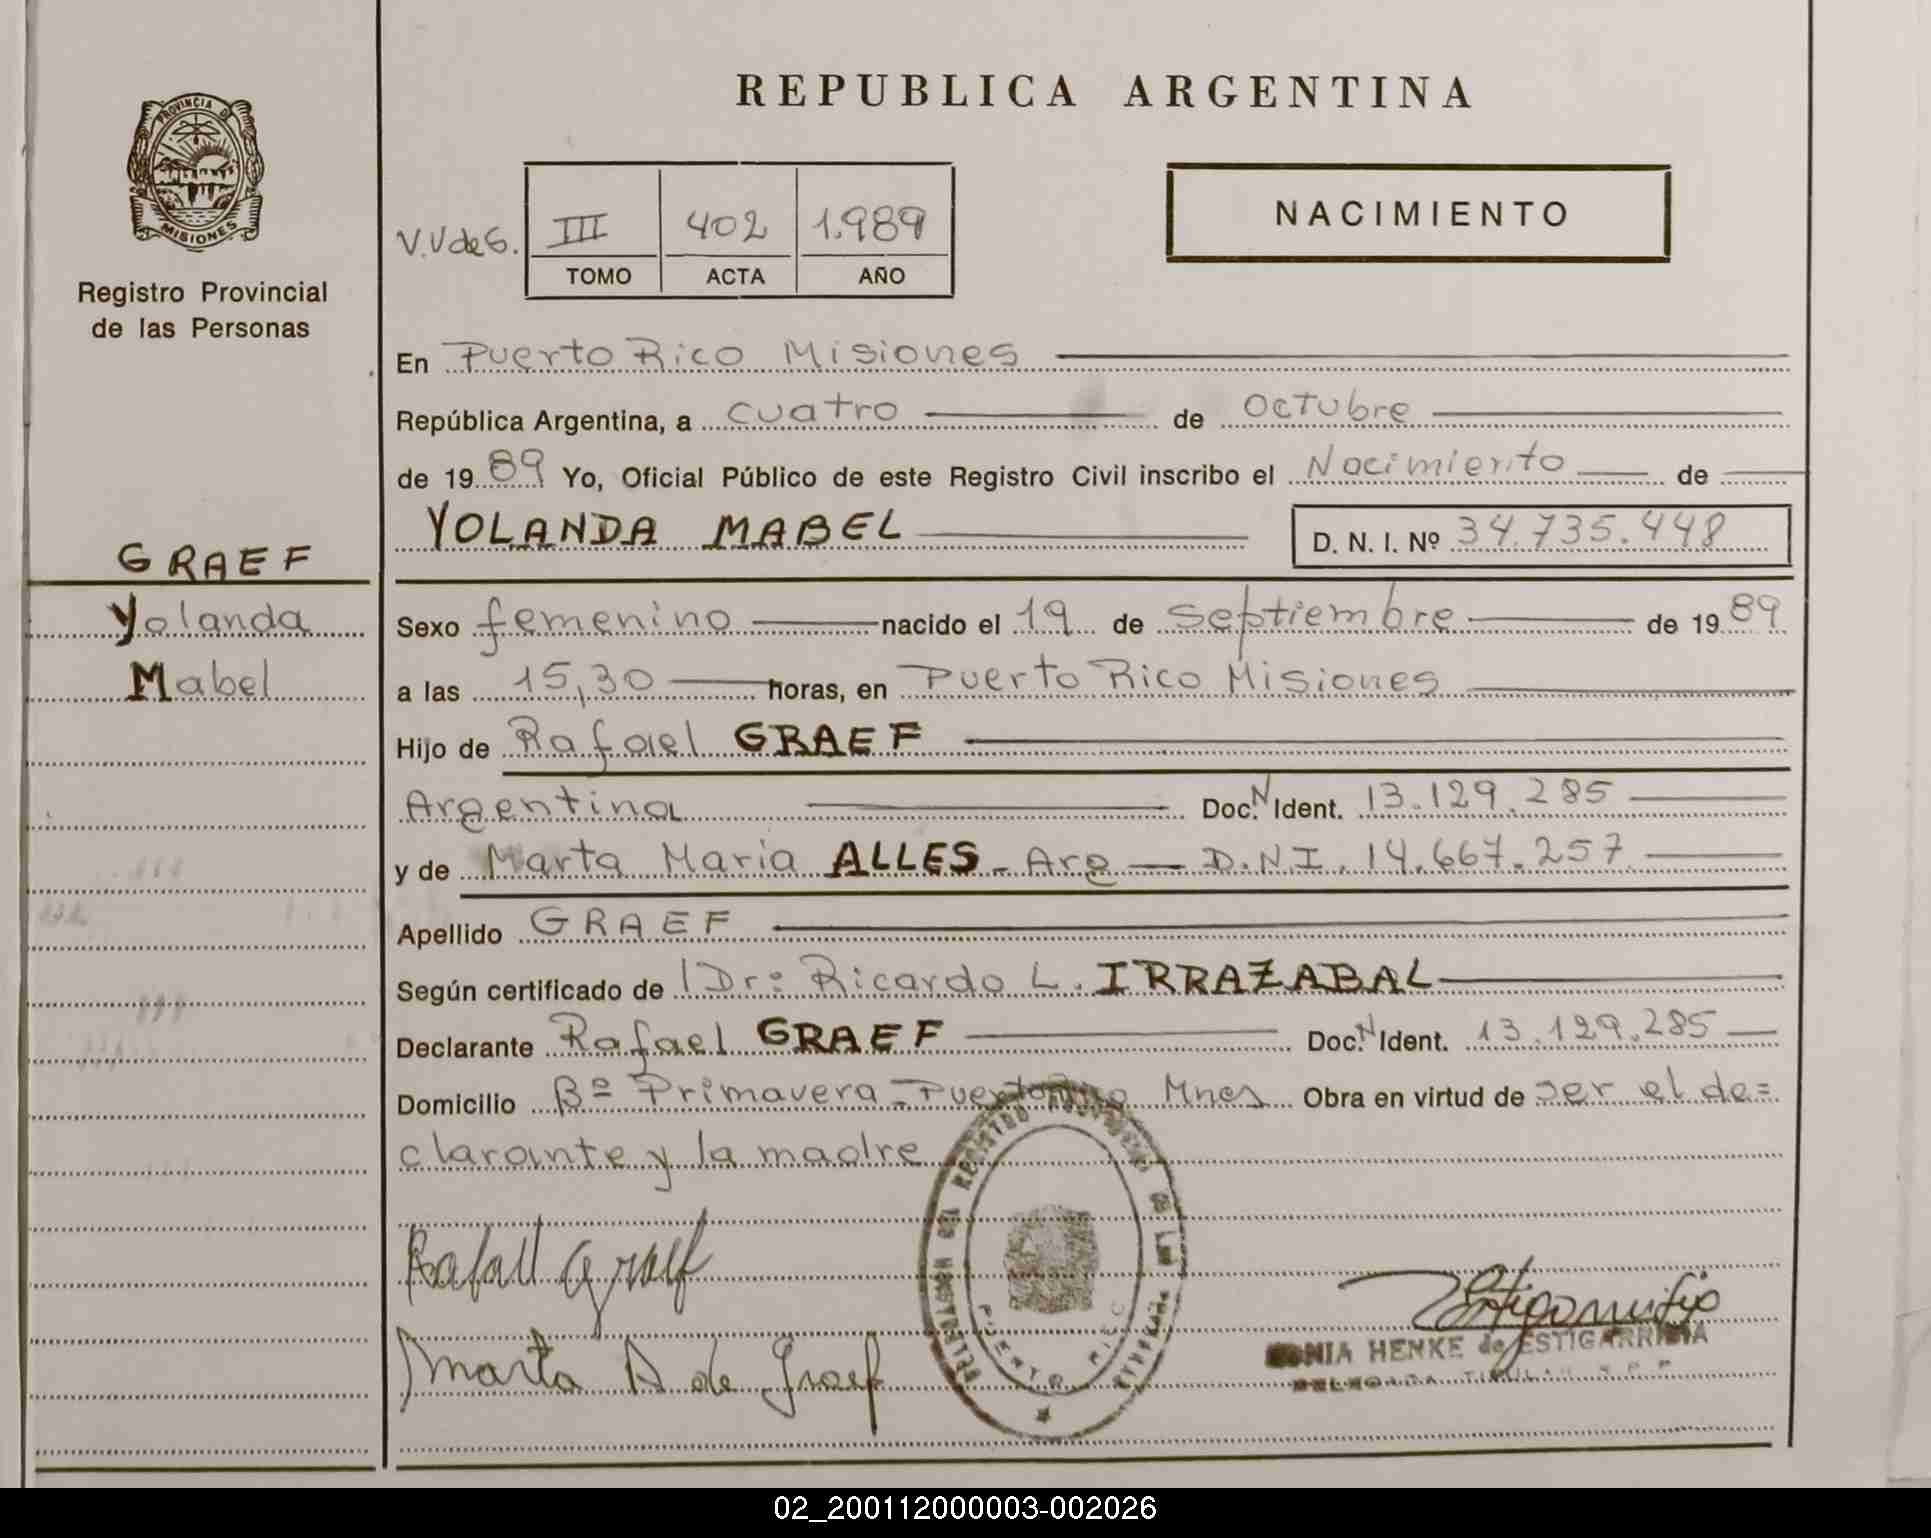 REPUBLICA ARGENTINA
PROVINCIA DE
MISIONES
Registro Provincial
de las Personas
V.V de G.
III 402 1.989
TOMO ACTA AÑO
NACIMIENTO
En Puerto Rico Misiones
República Argentina, a cuatro de octubre
de 1989 Yo, Oficial Público de este Registro Civil inscribo el Nacimiento de
YOLANDA MABEL D. N. I. Nº 34.735.448
GRAEF
Yolanda
Mabel
Sexo femenino nacido el 19 de septiembre de 1989
a las 15,30 horas, en Puerto Rico Misiones
Hijo de Rafael GRAEF
Argentina Doc. N Ident. 13.129.285
y de Marta Maria ALLES - Arg - D.N.I. 14.667.257
Apellido GRAEF
Según certificado de Dr: Ricardo L. IRRAZABAL
Declarante Rafael GRAEF Doc. N Ident. 13.129.285
Domicilio Bº Primavera - Puerto Rico Mnes Obra en virtud de ser el de=
clarante y la madre
Rafael Graef
Marta A de Graef
DELEGACION DEL REGISTRO PROVINCIAL DE LAS PERSONAS
PUERTO RICO
HENKE de ESTIGARRIBIA
02_200112000003-002026